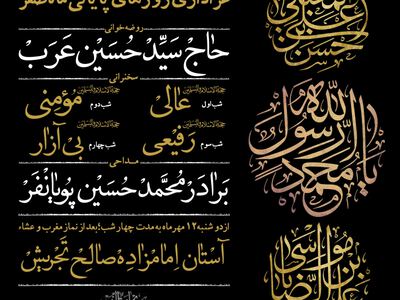 عزاداری روزهای پایانی ماه صفر
روضه‌خوانی
حاج سیّدْ حُسَین عَرَب
سخنرانی
شب اول حجةالاسلام‌والمسلمین عالی
شب دوم حجةالاسلام‌والمسلمین مؤمنی
شب سوم حجةالاسلام‌والمسلمین رفیعی
شب چهارم حجةالاسلام‌والمسلمین بی‌آزار
مداحی
برادر محمّد حسین پویانفر
از دوشنبه ۱۲ مهرماه به مدت چهار شب؛ بعد از نماز مغرب و عشاء
آستان امامزاده صالح تجریش
حسن بن علی المجتبی
یا رسول الله محمد
علی بن موسی الرضا